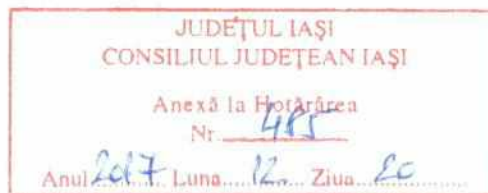 JUDEŢUL IAŞI
CONSILIUL JUDEŢEAN IAŞI
Anexă la Hotărârea
Nr. 485
Anul 2017 Luna 12. Ziua 20